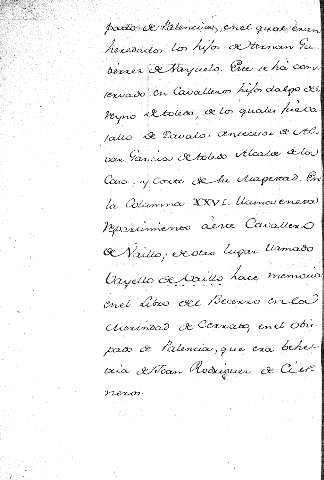 pado de Palencia, en el qual eran
heredados los hijos de Fernan Gu-
tierrez de Vayuelo. Este se há con-
servado en Cavalleros hijos dalgo del
Reyno de Toledo, de los quales fue va-
sallo de Davalo. Ancesor de Al-
var Garcia de Toledo Alcalde de la
Casa, y Corte de Su Magestad. En
la Columna XXVI. llama en este
Repartimiento á este Cavallero
de Naillo; de otro lugar llamado
Vayello de Naillo hace memoria
en el Libro del Becerro en la
Merindad de Cerrato, en el obis-
pado de Palencia, que era behe-
tria de Joan Rodriguez de Cis-
neros.